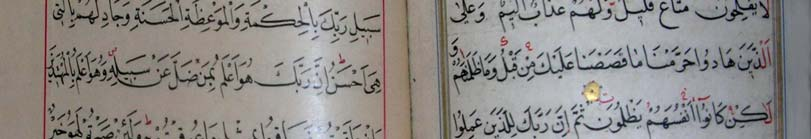 لَا يُفْلِحُونَ مَتَاعٌ قَلِيلٌ وَلَهُمْ عَذَابٌ اَلِيمٌ وَعَلَى
الَّذِينَ هَادُوا حَرَّمْنَا مَا قَصَصْنَا عَلَيْكَ مِنْ قَبْلُ وَمَا ظَلَمْنَاهُمْ وَ
لٰكِنْ كَانُوا اَنْفُسَهُمْ يَظْلِمُونَ ثُمَّ اِنَّ رَبَّكَ لِلَّذِينَ عَمِلُوا
سَبِيلِ رَبِّكَ بِالْحِكْمَةِ وَالْمَوْعِظَةِ الْحَسَنَةِ وَجَادِلْهُمْ بِالَّتِي
هِيَ اَحْسَنُ اِنَّ رَبَّكَ هُوَ اَعْلَمُ بِمَنْ ضَلَّ عَنْ سَبِيلِهِ وَهُوَ اَعْلَمُ بِالْمُهْتَدِينَ
وَلَئِنْ صَبَرْتُمْ لَهُوَ خَيْرٌ